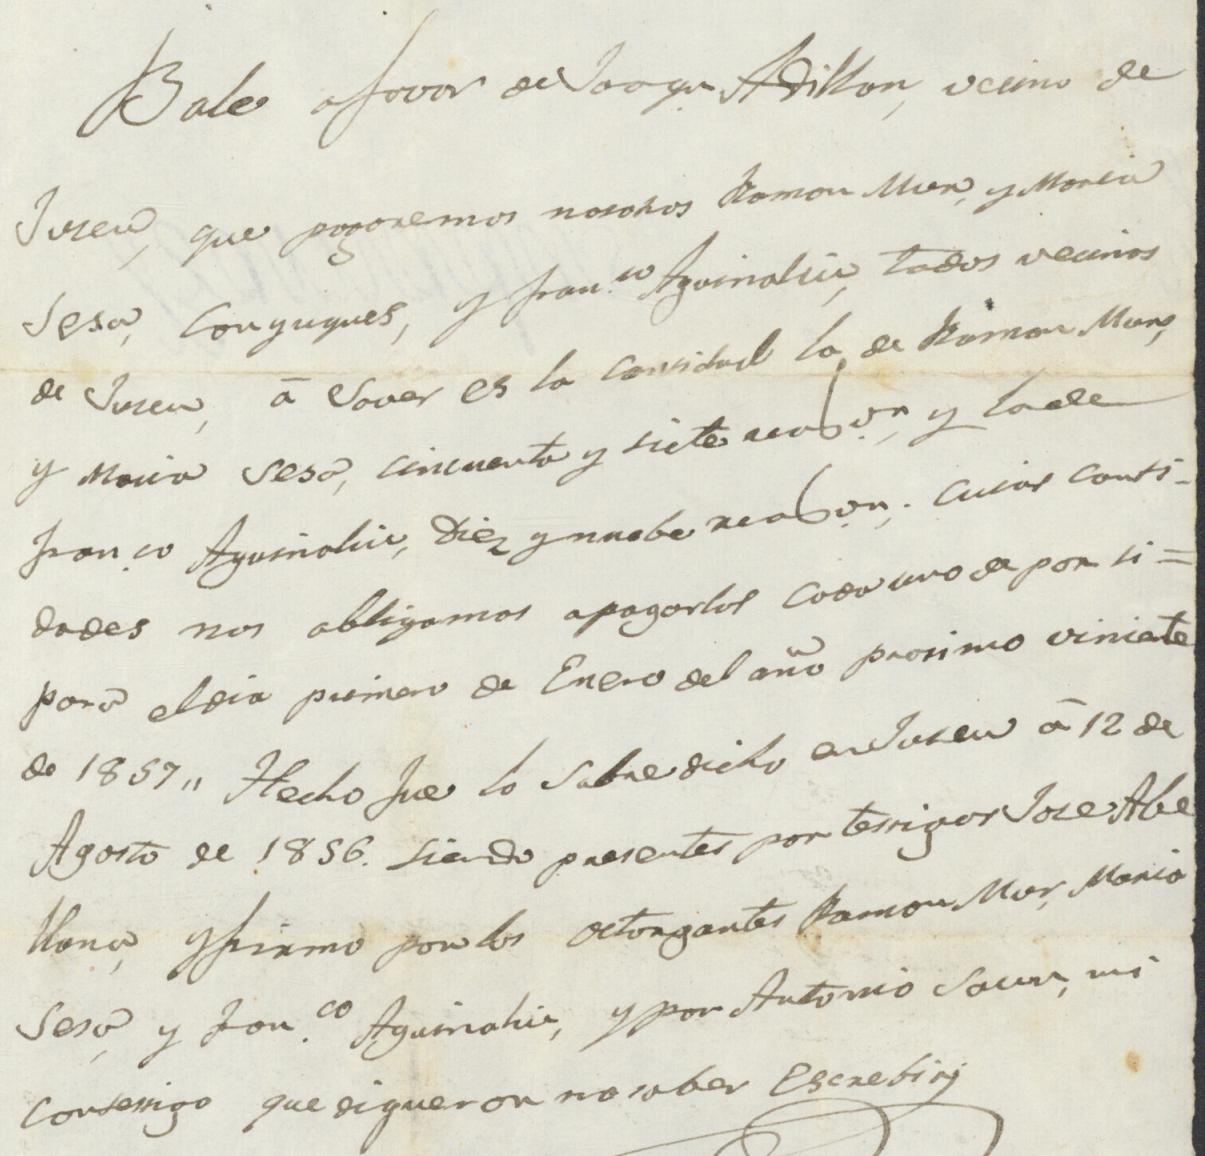 Bale a favor de Joaqn Adillon, vecino de
Juseu, que pagaremos nosotros Ramon Mur, y Maria
Sesa, Conyugues, y Fran.co Aguinaliu, todos vecinos
de Juseu, á Saver es la cantidad la de Ramon Mur,
y Maria Sesa, cincuenta y siete reales vn, y la de
Fran.co Aguinaliu, Diez y nuebe reales vn,. Cuias canti-
dades nos obligamos a pagarlos Cada uno de por si =
para el dia primero de Enero del año procimo viniente
de 1857,, Hecho fue lo Sobredicho en Juseu á 12 de
Agosto de 1856. siendo presentes por testigos Jose Abe
llana, y firmo por los otorgantes Ramon Mur, Maria
Sesa, y Fran.co Aguinaliu, y por Antonio mi
contestigo que digueron no saber Escrebir,